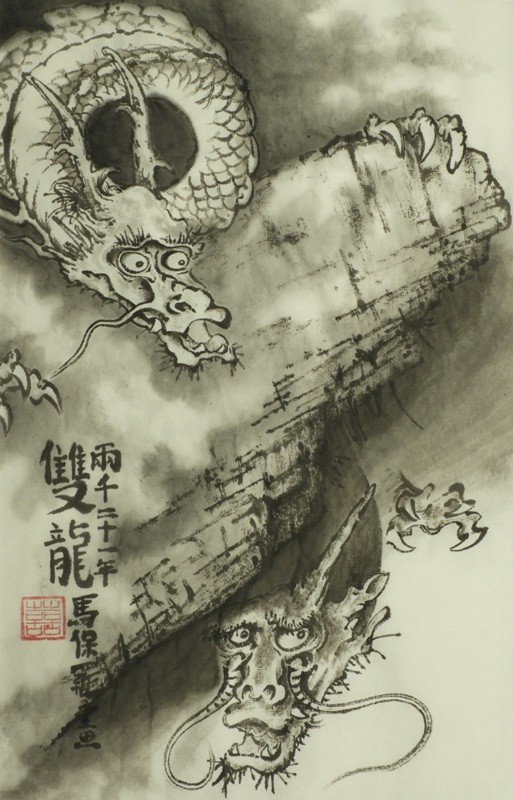 雙龍
兩千二十一年
馬保羅